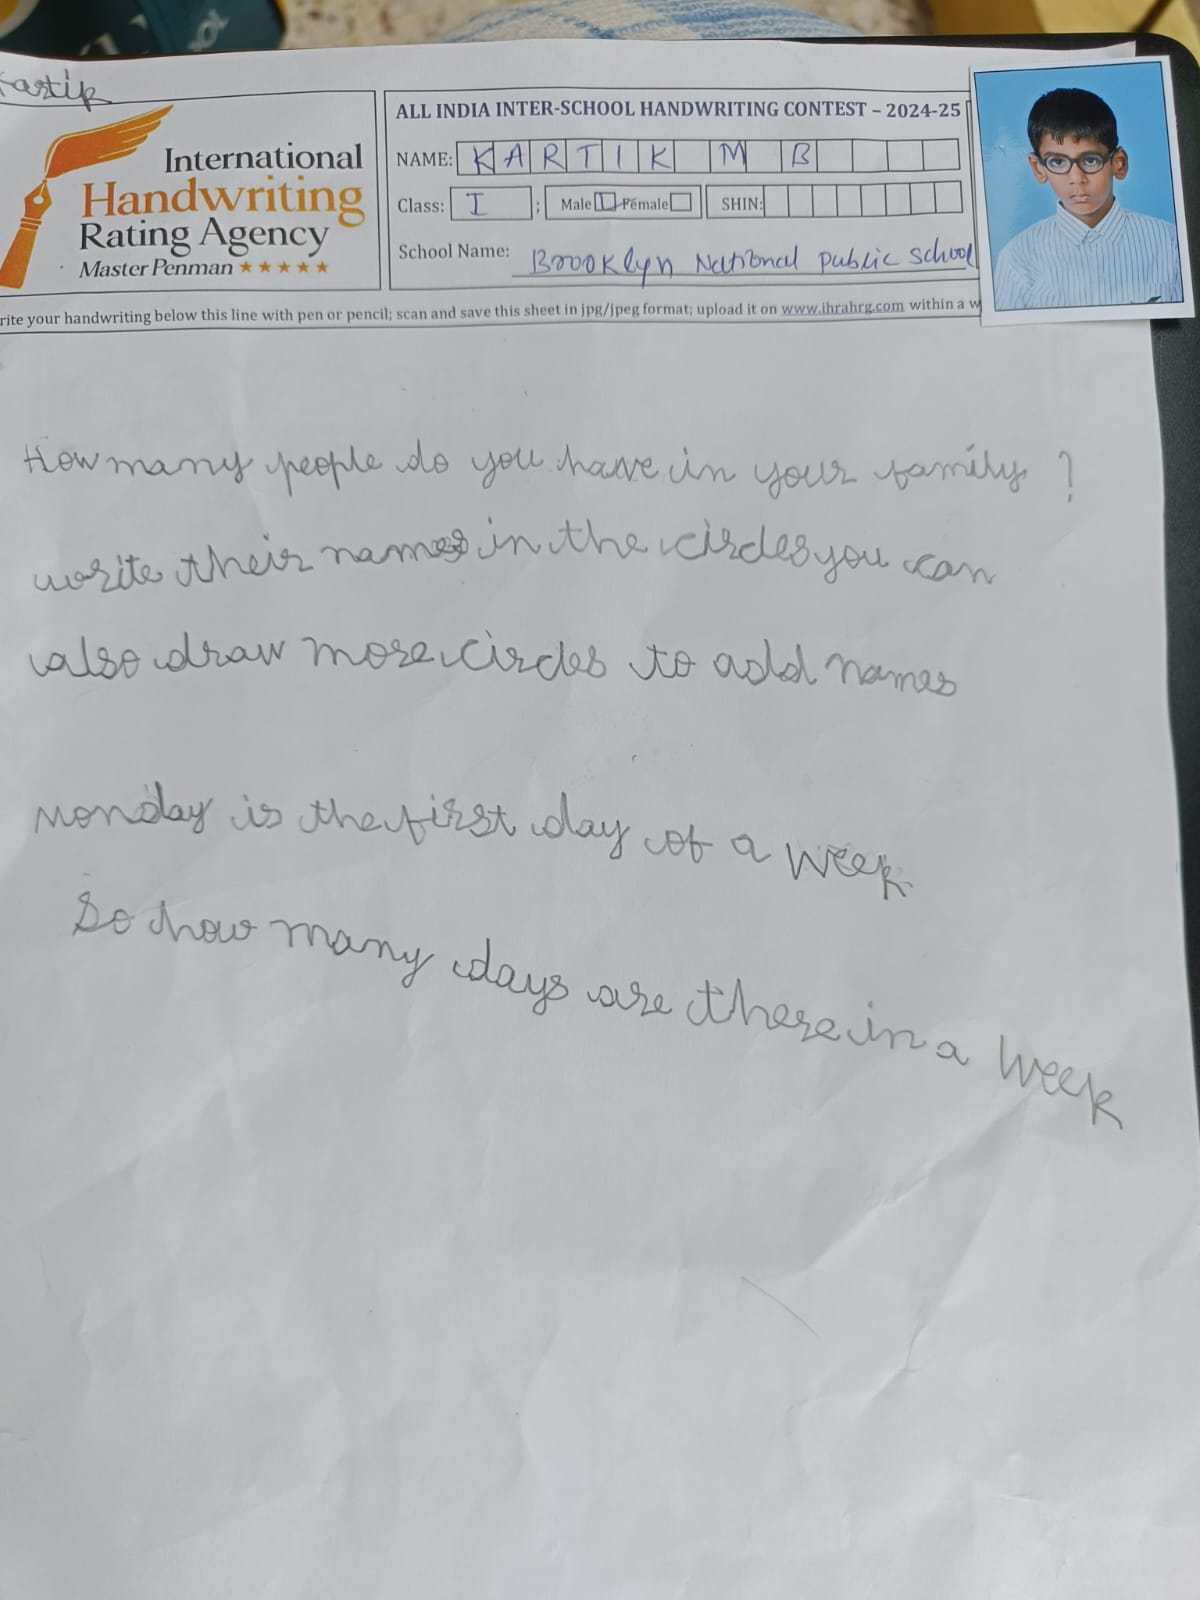 Kartik
International
Handwriting
Rating Agency
Master Penman
ALL INDIA INTER-SCHOOL HANDWRITING CONTEST – 2024-25
NAME: KARTIK M B
Class: I ; Male Female SHIN:
School Name: Brooklyn National public school
rite your handwriting below this line with pen or pencil; scan and save this sheet in jpg/jpeg format; upload it on www.ihrahrg.com within a w
How many people do you have in your family ?
write their names in the circles you can
also draw more circles to add names
Monday is the first day of a week
So how many days are there in a week